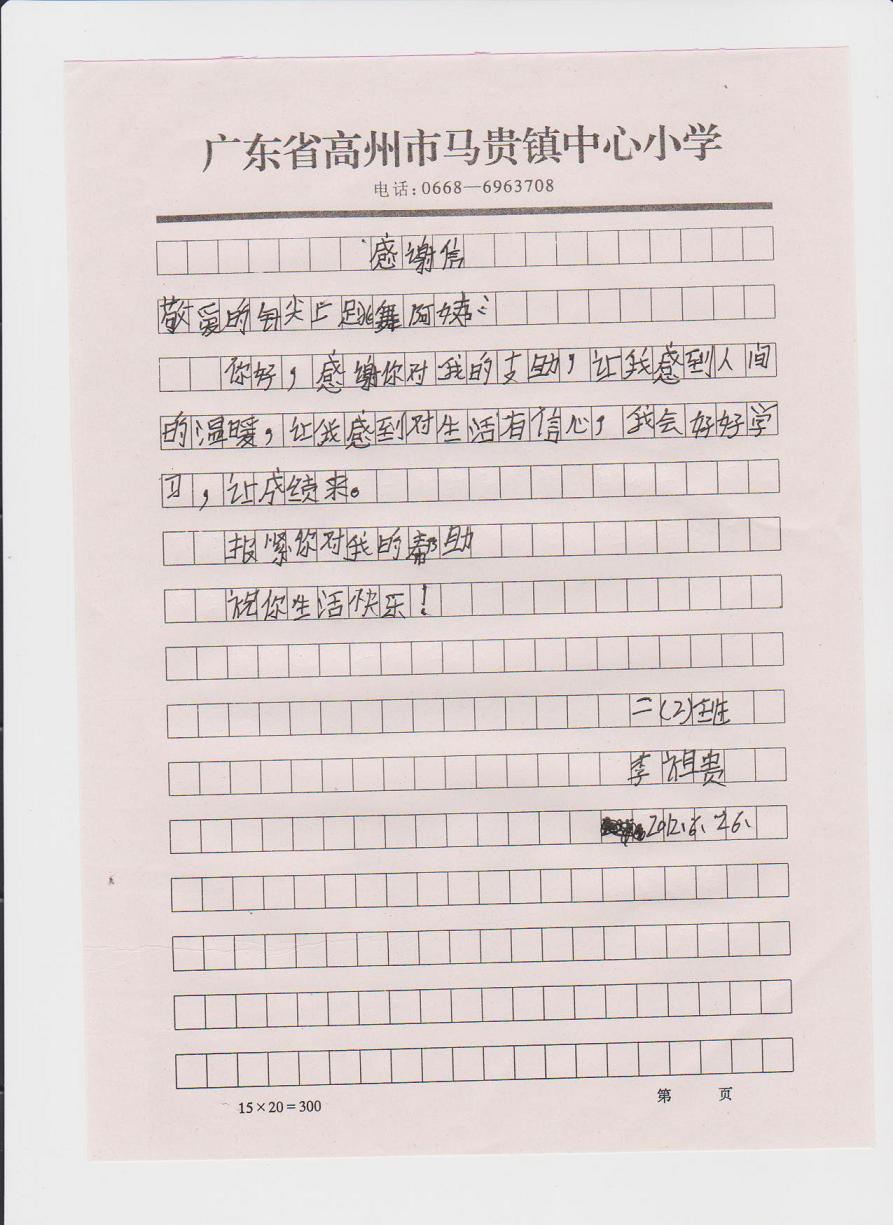 广东省高州市马贵镇中心小学
电话:0668—6963708
感谢信
敬爱的针尖上跳舞阿姨:
你好,感谢你对我的支助,让我感到人间
的温暖,让我感到对生活有信心,我会好好学
习,让成绩来。
报紧你对我的帮助
祝你生活快乐!
二(2)班
李祖贵
2012.6.26.
15×20=300
第 页